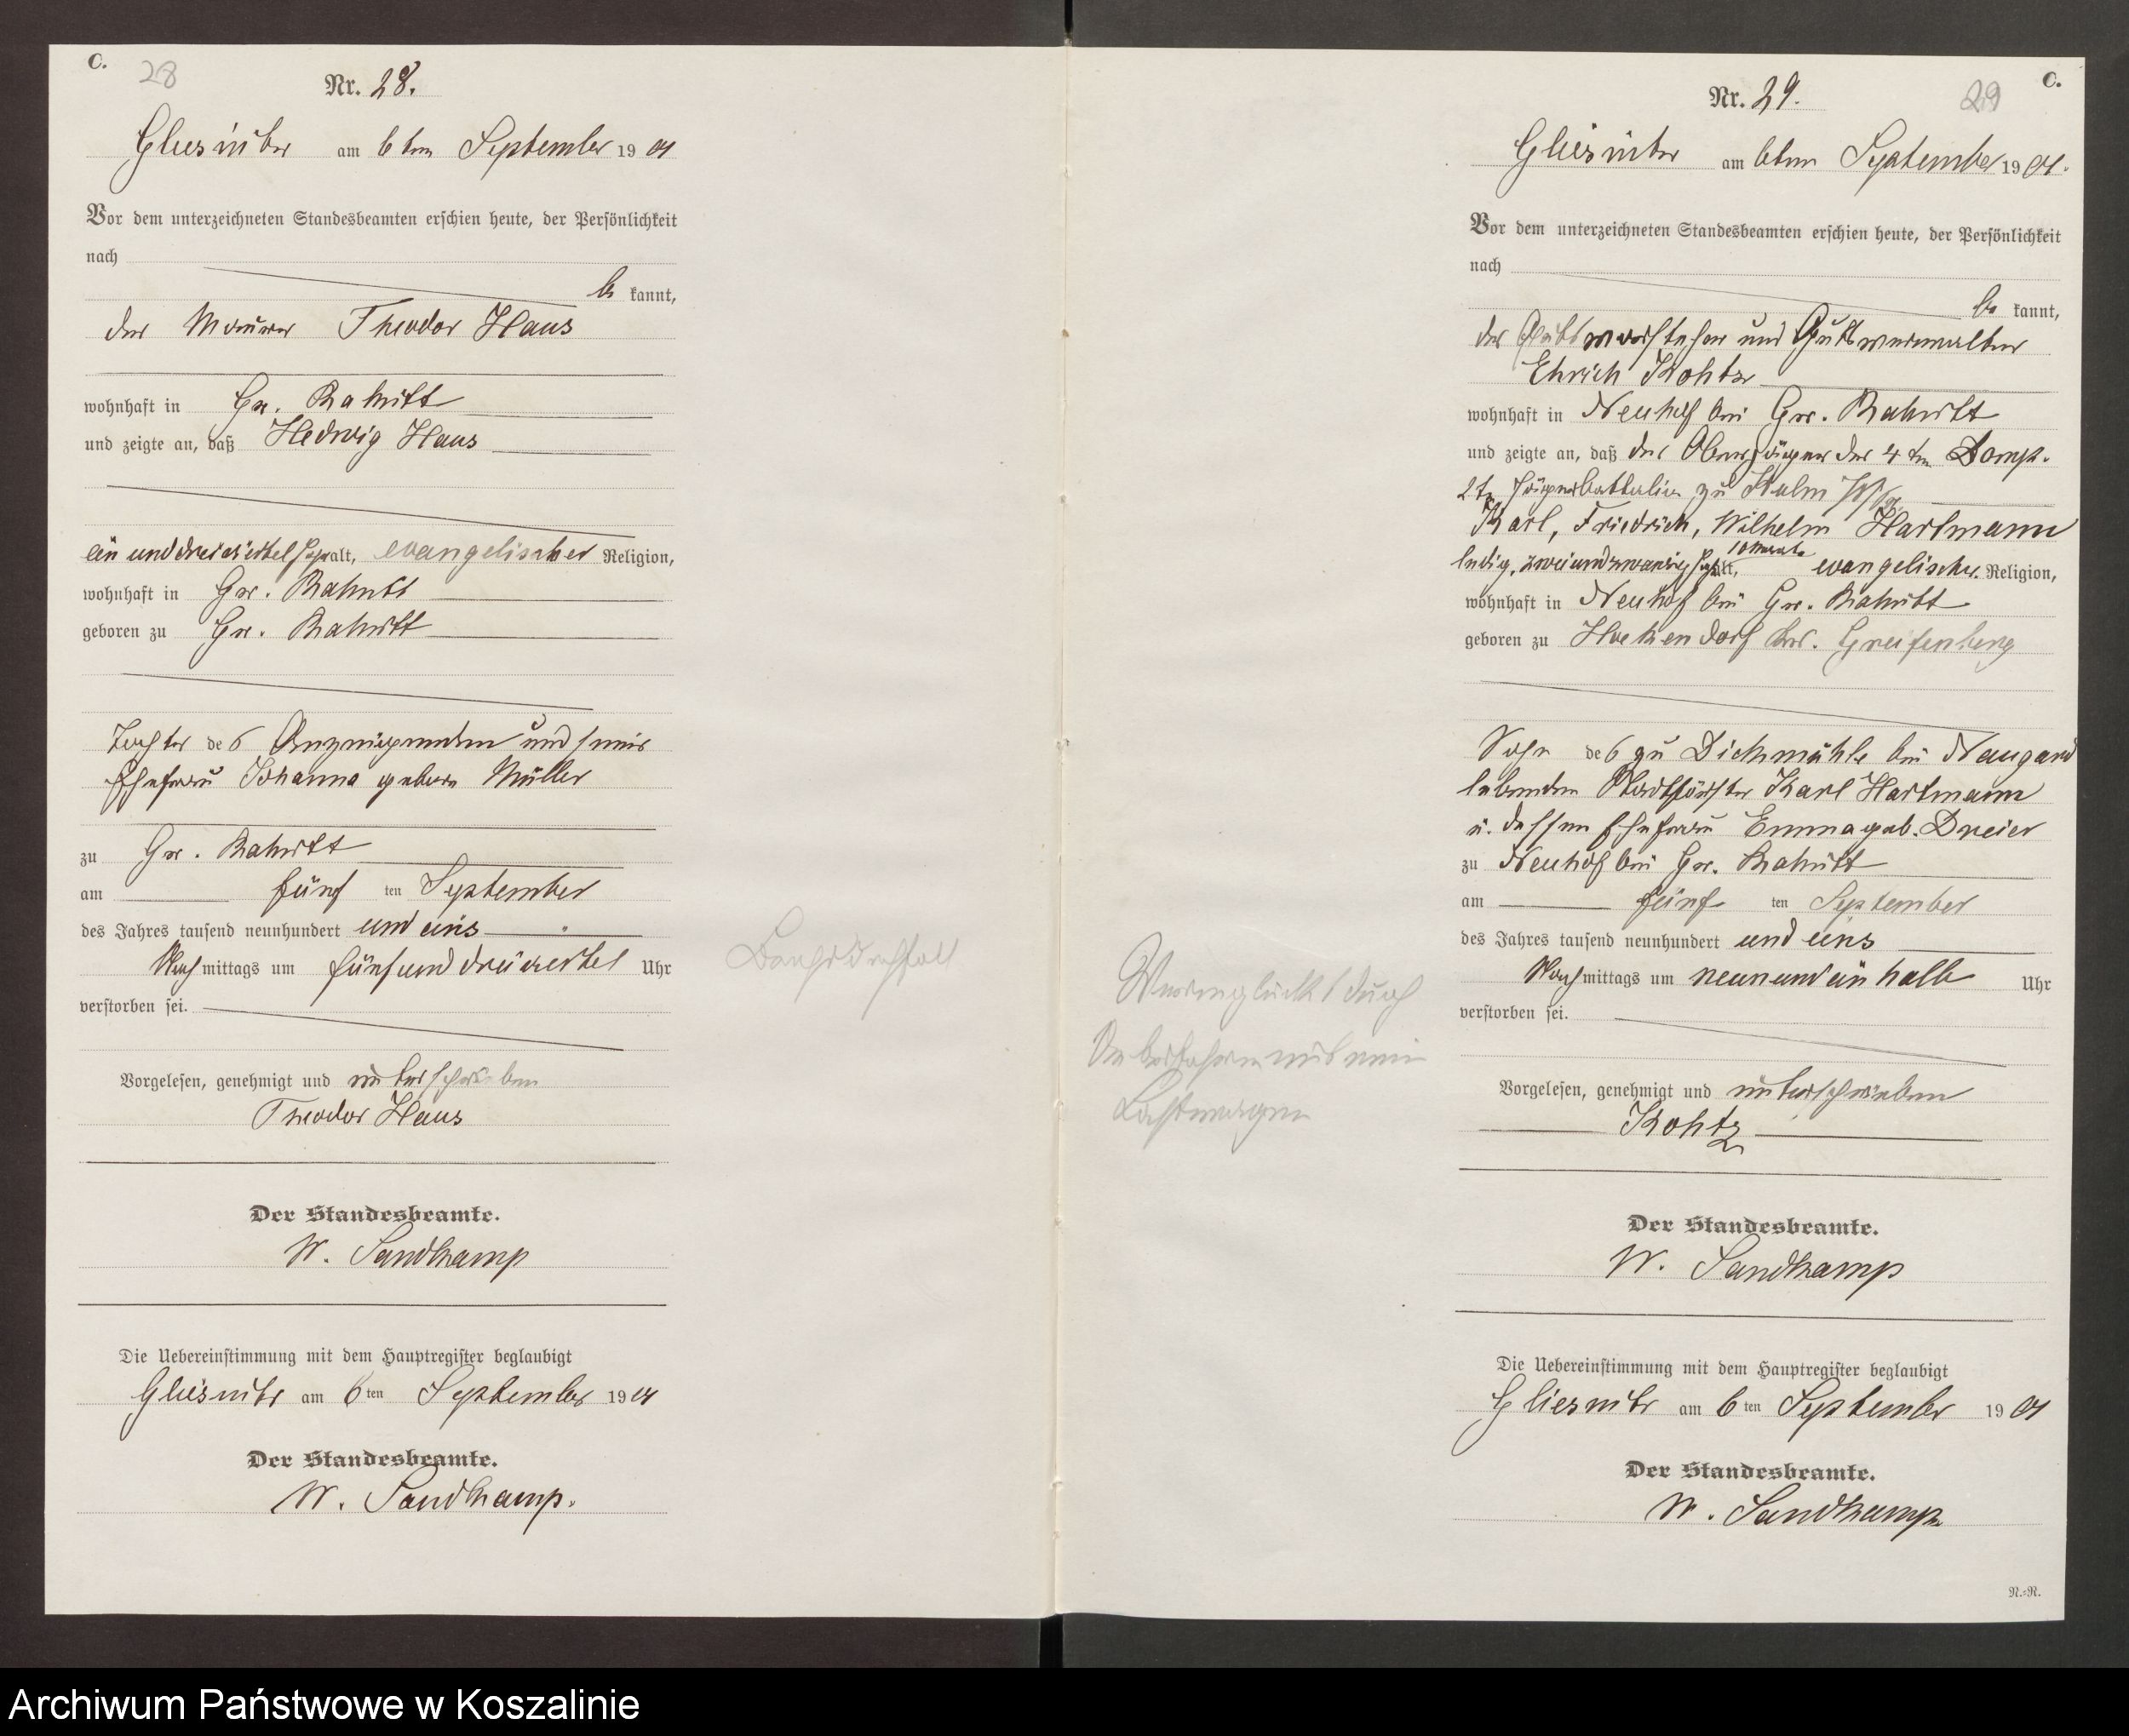 C. 28
Nr. 28.
Gliesnitz am 6ten September 1901
Vor dem unterzeichneten Standesbeamten erschien heute, der Persönlichkeit
nach
be kannt,
der Maurer Theodor Haus
wohnhaft in Gr. Rakitt
und zeigte an, daß Hedwig Haus
ein und dreiviertel Jahr alt, evangelischer Religion,
wohnhaft in Gr. Rakitt
geboren zu Gr. Rakitt
Tochter des Anzeigenden und seiner
Ehefrau Johanna geborn Müller
zu Gr. Rakitt
am fünf ten September
des Jahres tausend neunhundert und eins
Nach mittags um fünf und dreiviertel Uhr
verstorben sei.
Vorgelesen, genehmigt und unterschrieben
Theodor Haus
Der Standesbeamte.
W. Sandkamp
Die Uebereinstimmung mit dem Hauptregister beglaubigt
Gliesnitz am 6ten September 1901
Der Standesbeamte.
W. Sandkamp.
Brechdurchfall
C.
29
Nr. 29.
Gliesnitz am 6ten September 1901.
Vor dem unterzeichneten Standesbeamten erschien heute, der Persönlichkeit
nach
be kannt,
der Gutsvorsteher und Gutsverwalter
Ehrich Kohtz
wohnhaft in Neuhof bei Gr. Rakitt
und zeigte an, daß der Oberjäger der 4ten Comp.
2ten Jägerbattalion zu Kulm W/Pr.
Karl, Friedrich, Wilhelm Hartmann
ledig, zweiundzwanzig Jahr 10 Monate alt, evangelischer Religion,
wohnhaft in Neuhof bei Gr. Rakitt
geboren zu Hockendorf Krs. Greifenberg
Sohn des zu Dickmühle bei Naugard
lebenden Stadtförster Karl Hartmann
u. dessen Ehefrau Emma geb. Dreier
zu Neuhof bei Gr. Rakitt
am fünf ten September
des Jahres tausend neunhundert und eins
Nach mittags um neun und ein halb Uhr
verstorben sei.
Vorgelesen, genehmigt und unterschrieben
Kohtz
Der Standesbeamte.
W. Sandkamp
Die Uebereinstimmung mit dem Hauptregister beglaubigt
Gliesnitz am 6ten September 1901
Der Standesbeamte.
W. Sandkamp
N.-R.
Verunglückt durch
Ueberfahren mit ein
Lastwagen
Archiwum Państwowe w Koszalinie